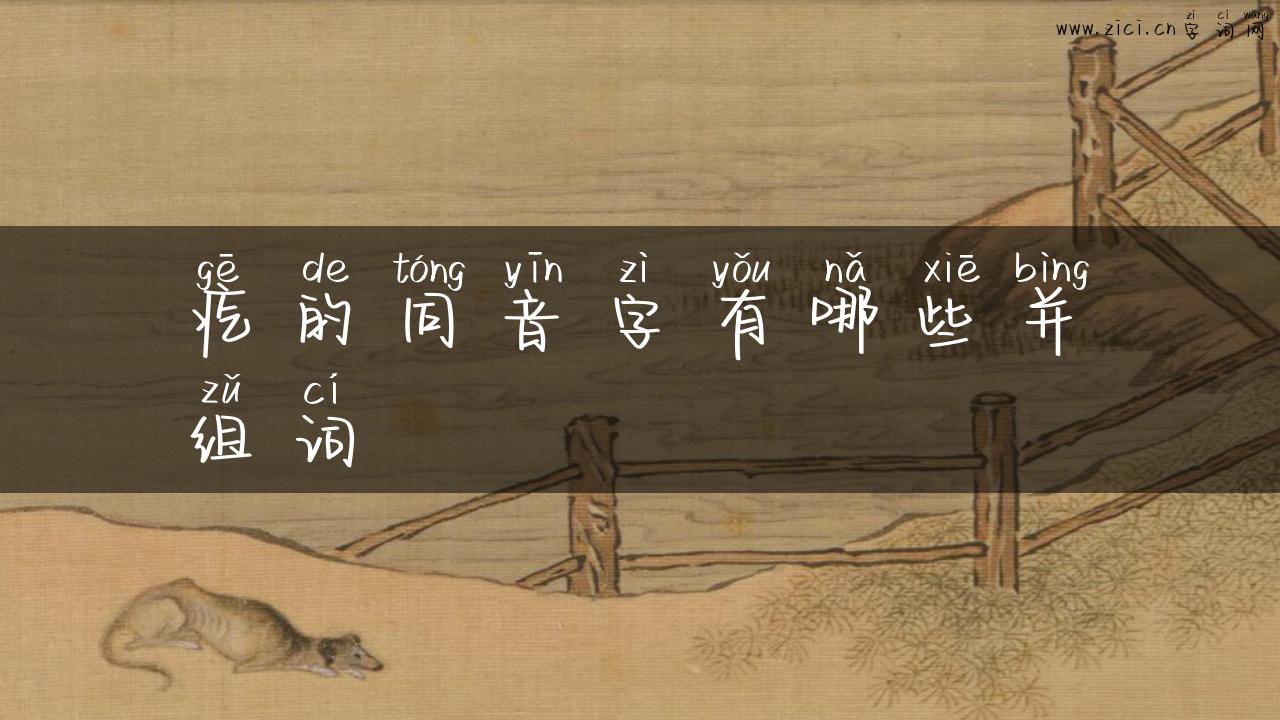 zì cí wǎng
www.zici.cn 字词网
gē de tóng yīn zì yǒu nǎ xiē bìng
疙的同音字有哪些并
zǔ cí
组词